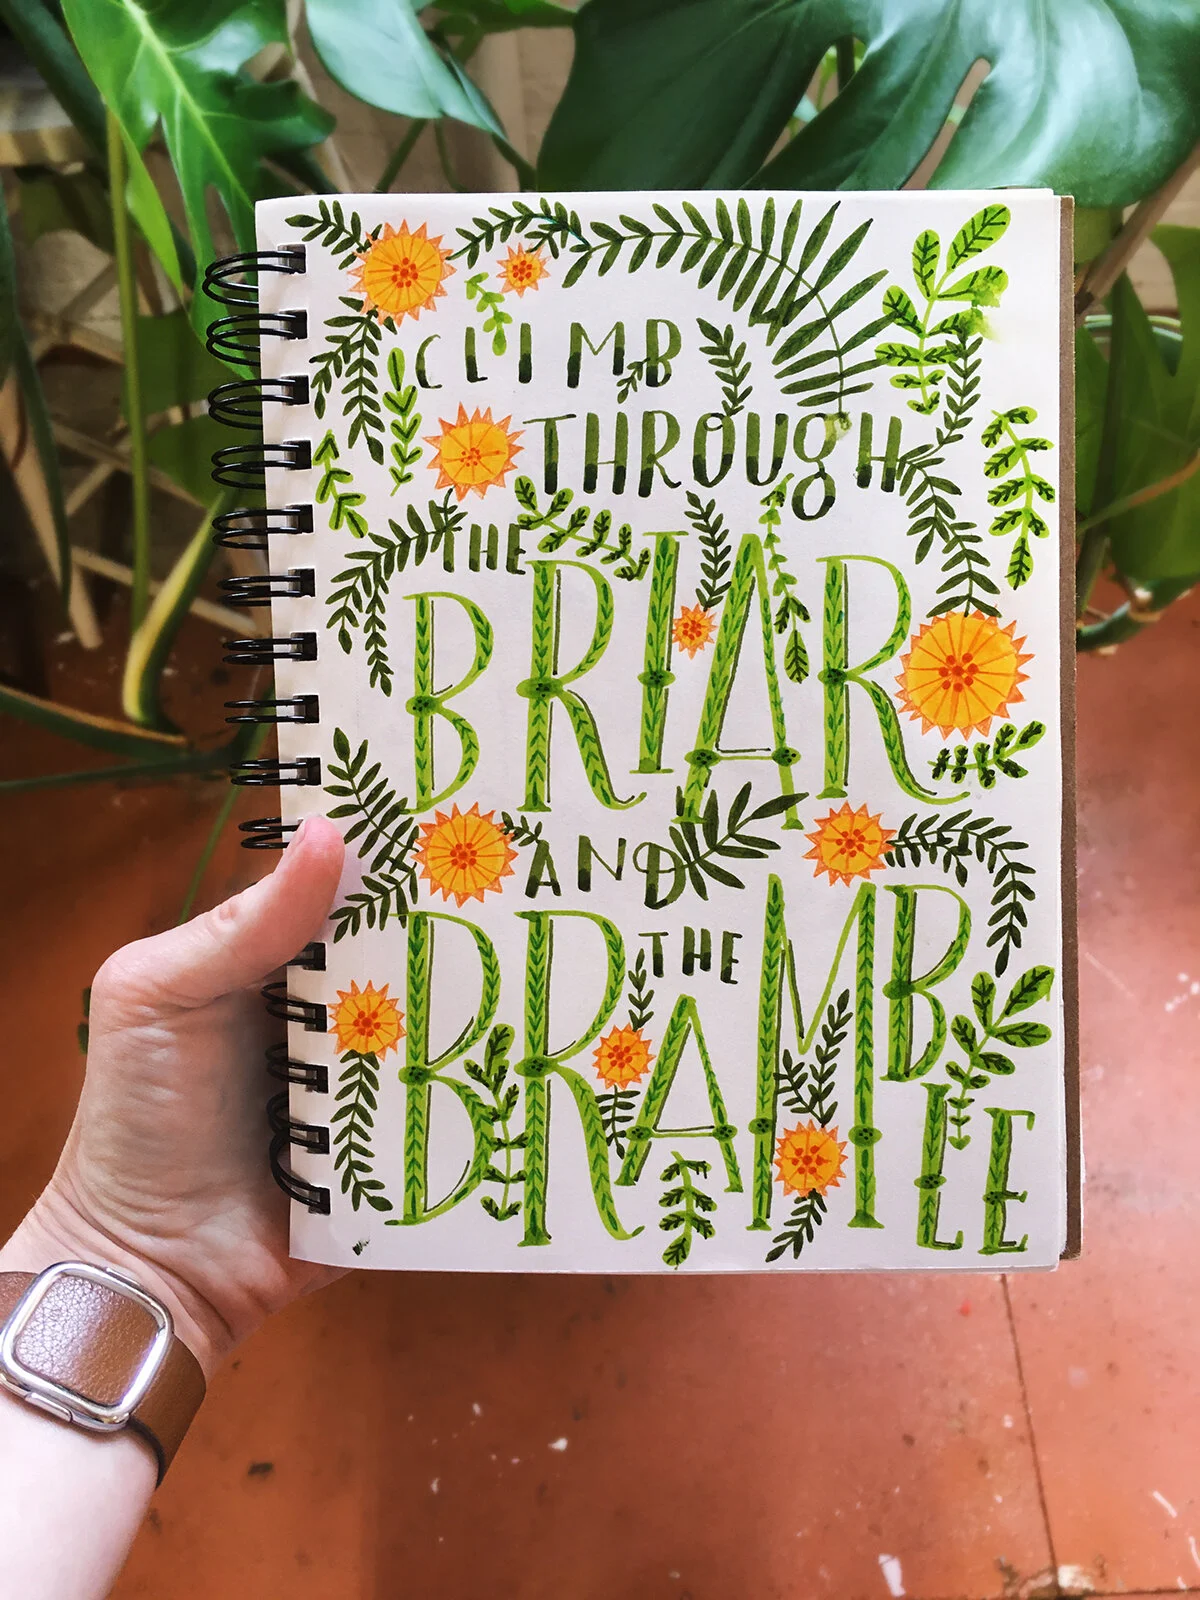 CLIMB
THROUGH
THE
BRIAR
AND
THE
BRAMBLE